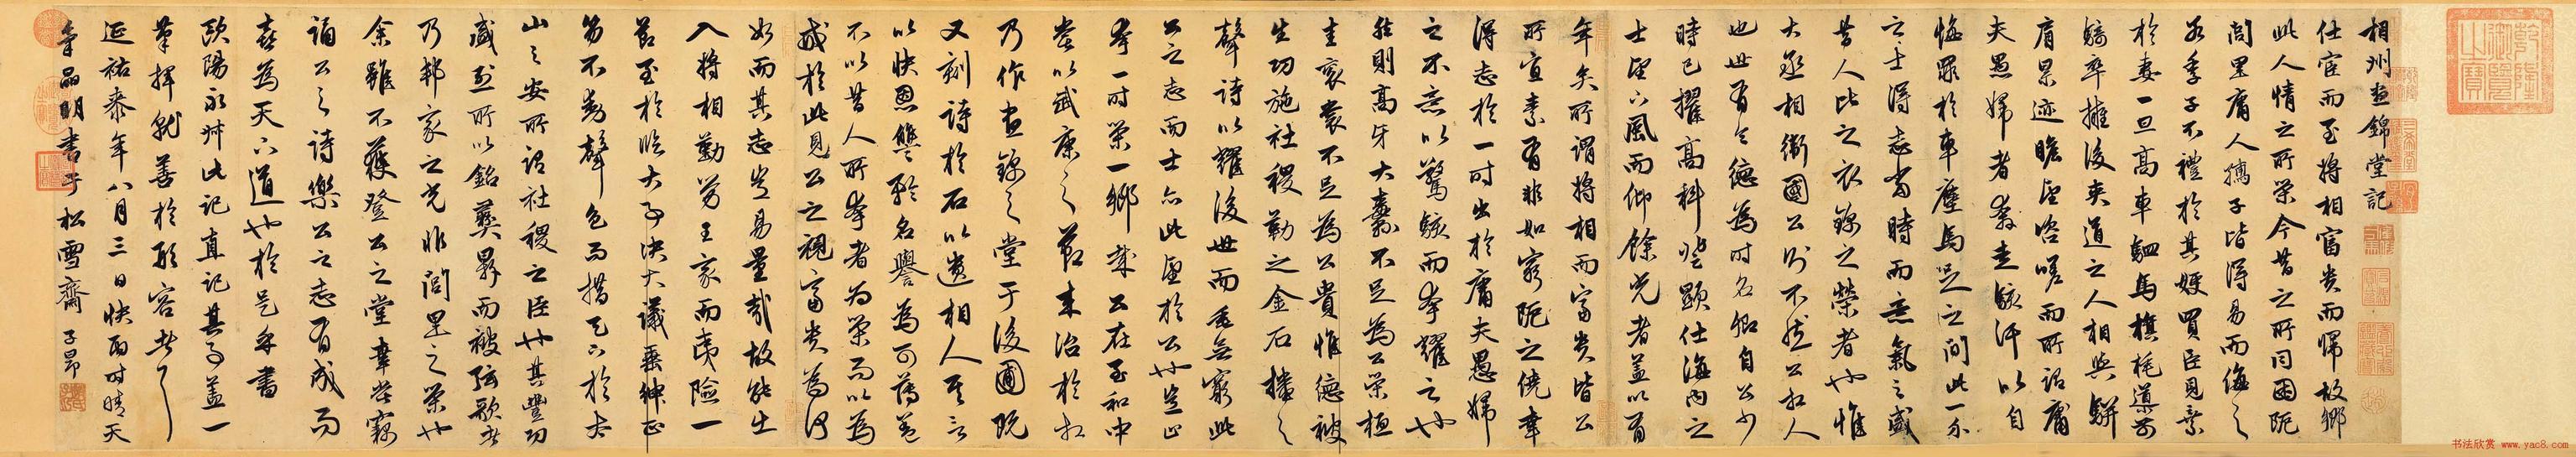 相州晝錦堂記
仕宦而至將相富貴而歸故鄉
此人情之所榮今昔之所同困阨
閭里庸人孺子皆得易而侮之
若季子不禮於其嫂買臣見棄
於妻一旦高車駟馬旗旄導前
騎卒擁後夾道之人相與駢
肩累迹瞻望咨嗟而所謂庸
夫愚婦者奔走駭汗以自
悔罪於車塵馬足之間此一介
之士得志當時而意氣之盛
昔人比之衣錦之榮者也惟
大丞相衛國公則不然公相人
也世有令德為時名卿自公少
時已擢高科登顯仕海內之
士望下風而仰餘光者蓋以有
年矣所謂將相而富貴皆公
所宜素有非如窮阨之僥幸
得志於一時出於庸夫愚婦
之不意以驚駭而夸耀之也
然則高牙大纛不足為公榮桓
圭袞裳不足為公貴惟德被
生功施社稷勒之金石播之
聲詩以耀後世而垂無窮此
公之志而士亦此望於公也豈止
夸一時榮一鄉哉公在至和中
嘗以武康之節來治於相
乃作晝錦之堂于後圃既
又刻詩於石以遺相人其言
以快恩讎矜名譽為可薄蓋
不以昔人所夸者為榮而以為
戒於此見公之視富貴為何
如而其志豈易量哉故能出
入將相勤勞王家而夷險一
節至於臨大事決大議垂紳正
笏不動聲色而措天下於太
山之安所謂社稷之臣也其豐功
盛烈所以銘彝鼎而被弦歌者
乃邦家之光非閭里之榮也
余雖不獲登公之堂幸嘗竊
誦公之詩樂公之志有成而
喜為天下道也於是乎書
歐陽永叔此記真記其事蓋一
筆揮就善於形容者
延祐叁年八月三日快雨時晴天
明書于松雪齋 子昂
乾隆御覽之寶
书法欣赏 www.yac8.com